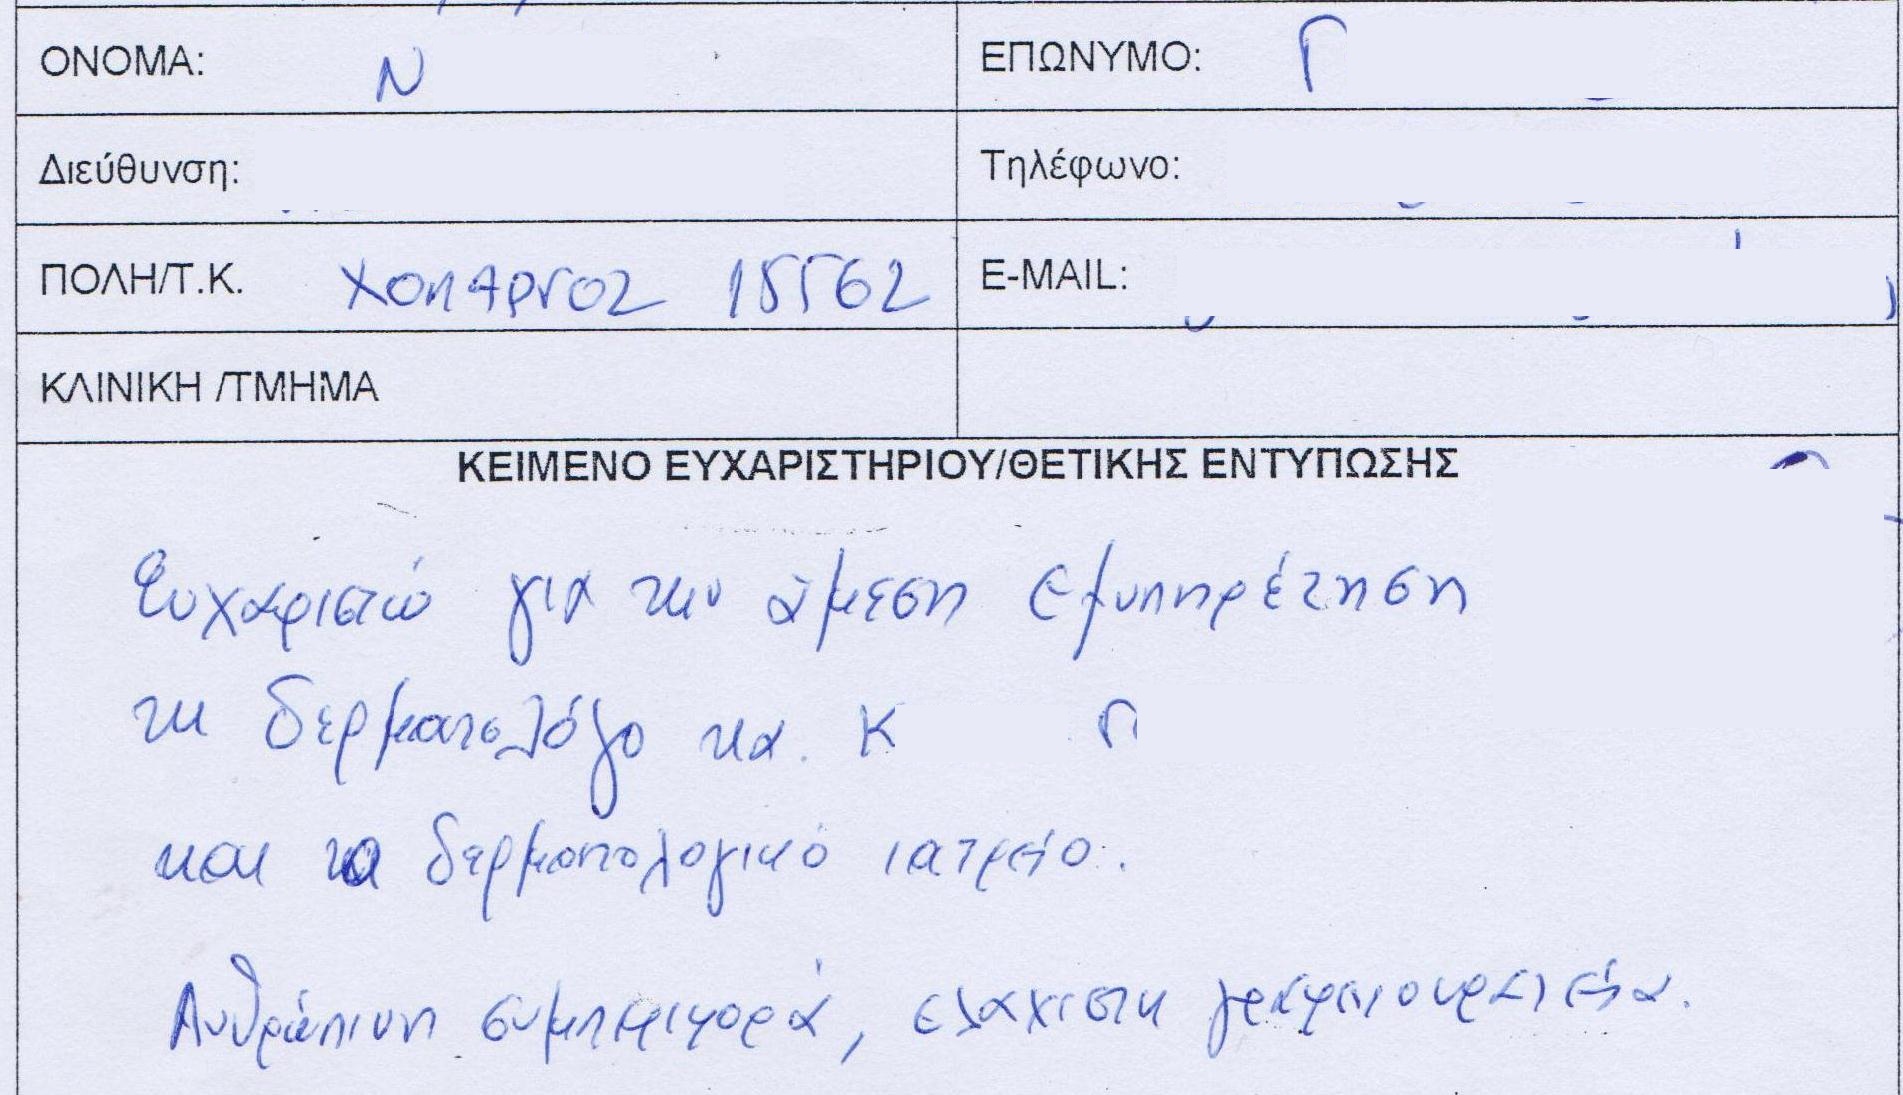 ΟΝΟΜΑ: Ν ΕΠΩΝΥΜΟ: Γ
Διεύθυνση: Τηλέφωνο:
ΠΟΛΗ/Τ.Κ. ΧΟΛΑΡΓΟΣ 15562 E-MAIL:
ΚΛΙΝΙΚΗ /ΤΜΗΜΑ
ΚΕΙΜΕΝΟ ΕΥΧΑΡΙΣΤΗΡΙΟΥ/ΘΕΤΙΚΗΣ ΕΝΤΥΠΩΣΗΣ
Ευχαριστώ για την άμεση εξυπηρέτηση
τη δερματολόγο κα. Κ Γ
και το δερματολογικό ιατρείο.
Ανθρώπινη συμπεριφορά, ελάχιστη γραφειοκρατεία.